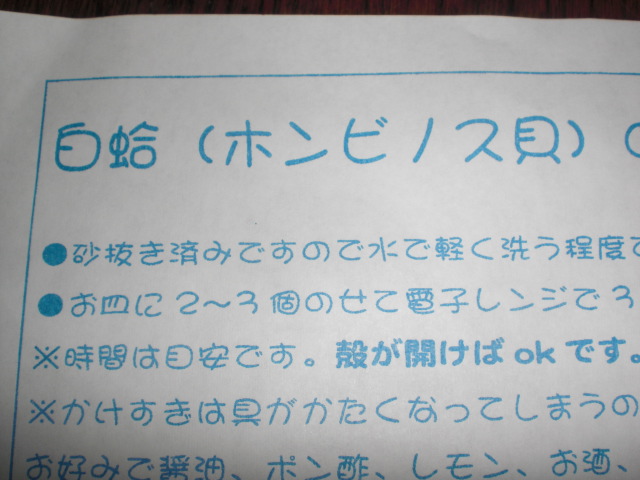 白蛤（ホンビノス貝）
●砂抜き済みですので水で軽く洗う程度で
●お皿に2～3個のせて電子レンジで3
※時間は目安です。殻が開けばokです。
※かけすぎは具がかたくなってしまうの
お好みで醤油、ポン酢、レモン、お酒、